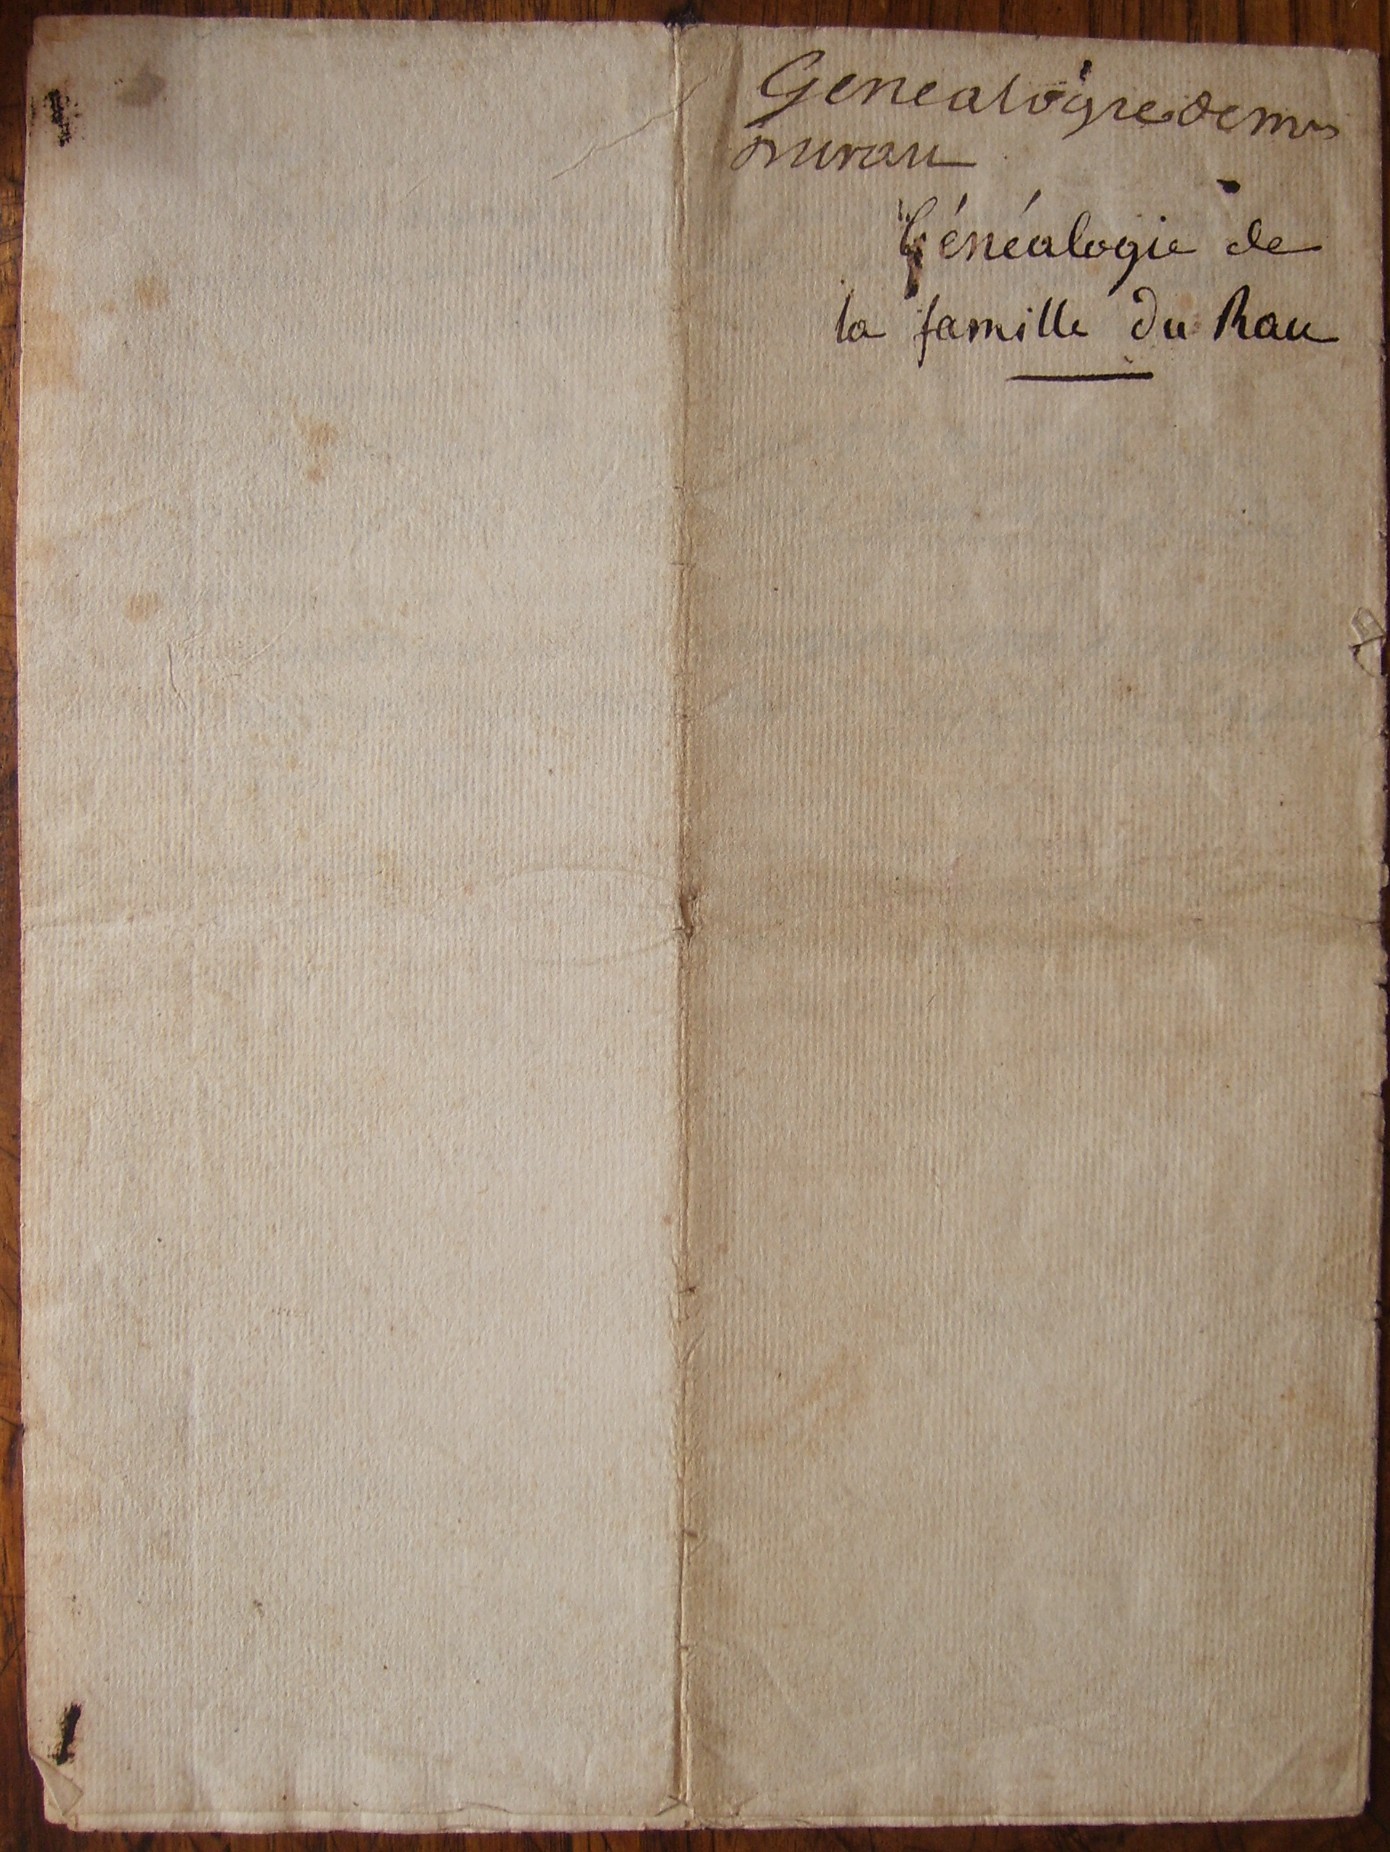 Genealogie de mrs
durau
Généalogie de
la famille du Rau